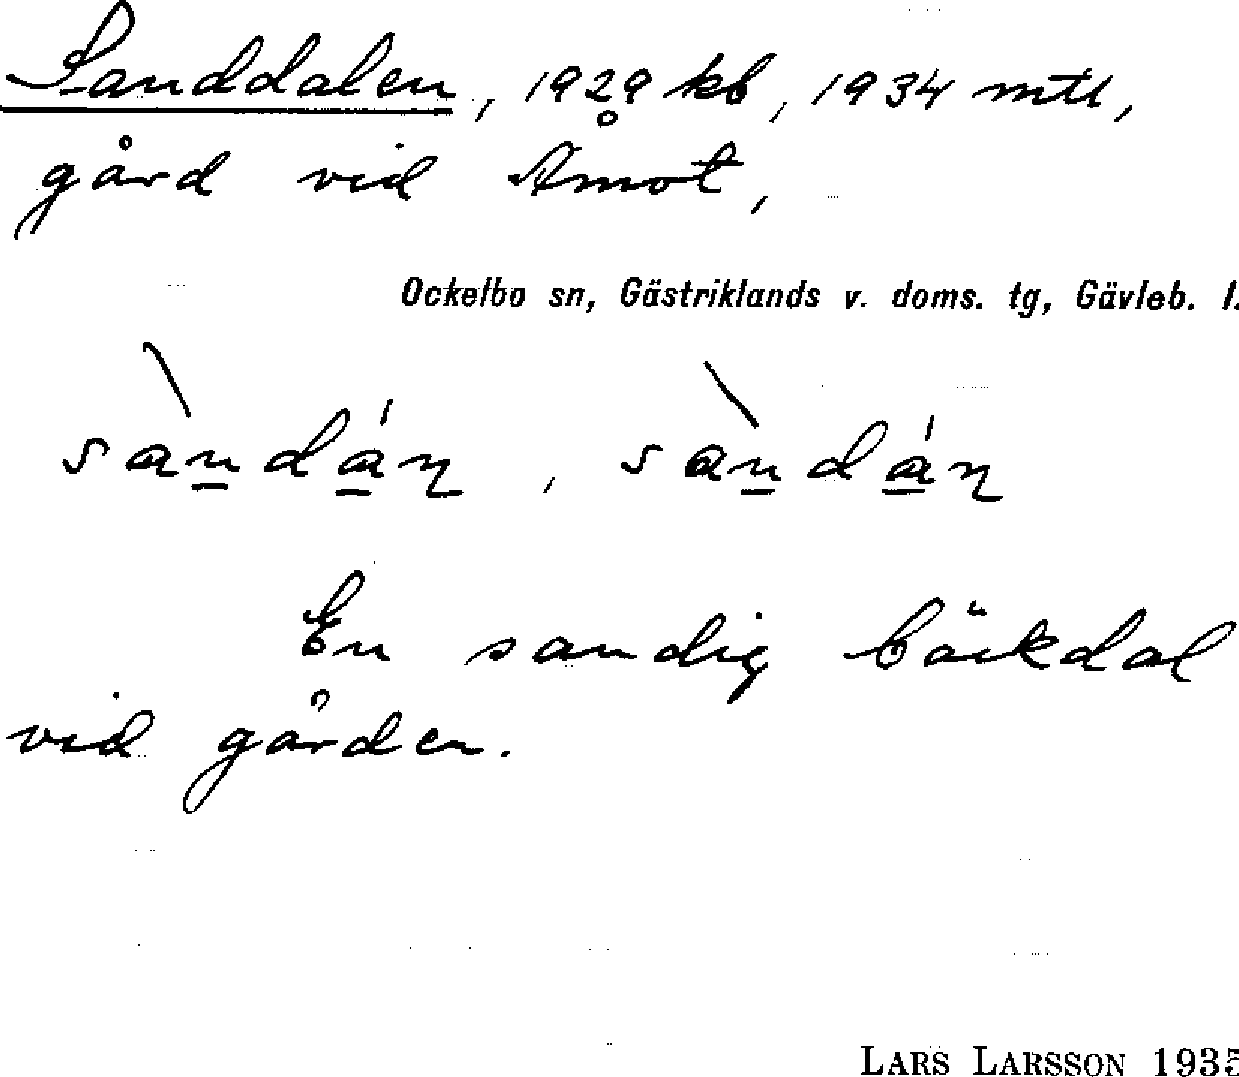 Sanddalen, 1929 kb, 1934 mtl,
gård vid Åmot,
Ockelbo sn, Gästriklands v. doms. tg, Gävleb. l.
sàndán, sàndán
En sandig bäckdal
vid gården.
LARS LARSSON 1935